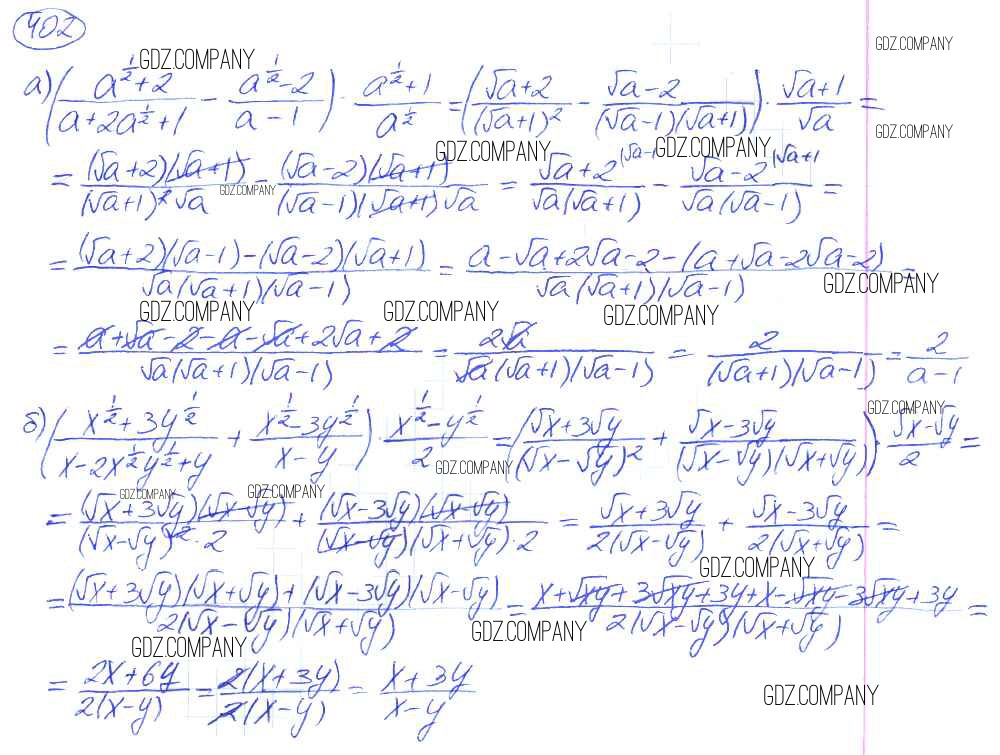 402
GDZ.COMPANY
GDZ.COMPANY
а) (a^{1/2}+2 / a+2a^{1/2}+1 - a^{1/2}-2 / a-1) · a^{1/2}+1 / a^{1/2} = (√a+2 / (√a+1)^2 - √a-2 / (√a-1)(√a+1)) · √a+1 / √a =
GDZ.COMPANY
GDZ.COMPANY
GDZ.COMPANY
= (√a+2)(√a+1) / (√a+1)^2 √a - (√a-2)(√a+1) / (√a-1)(√a+1)√a = √a+2 |√a-1 / √a(√a+1) - √a-2 |√a+1 / √a(√a-1) =
GDZ.COMPANY
= (√a+2)(√a-1)-(√a-2)(√a+1) / √a(√a+1)(√a-1) = a-√a+2√a-2-(a+√a-2√a-2) / √a(√a+1)(√a-1) =
GDZ.COMPANY
GDZ.COMPANY
GDZ.COMPANY
GDZ.COMPANY
= a+√a-2-a-√a+2√a+2 / √a(√a+1)(√a-1) = 2√a / √a(√a+1)(√a-1) = 2 / (√a+1)(√a-1) = 2 / a-1
GDZ.COMPANY
б) (x^{1/2}+3y^{1/2} / x-2x^{1/2}y^{1/2}+y + x^{1/2}-3y^{1/2} / x-y) · x^{1/2}-y^{1/2} / 2 = (√x+3√y / (√x-√y)^2 + √x-3√y / (√x-√y)(√x+√y)) · √x-√y / 2 =
GDZ.COMPANY
GDZ.COMPANY
GDZ.COMPANY
= (√x+3√y)(√x-√y) / (√x-√y)^2 · 2 + (√x-3√y)(√x-√y) / (√x-√y)(√x+√y)·2 = √x+3√y / 2(√x-√y) + √x-3√y / 2(√x+√y) =
GDZ.COMPANY
= (√x+3√y)(√x+√y)+(√x-3√y)(√x-√y) / 2(√x-√y)(√x+√y) = x+√xy+3√xy+3y+x-√xy-3√xy+3y / 2(√x-√y)(√x+√y) =
GDZ.COMPANY
GDZ.COMPANY
= 2x+6y / 2(x-y) = 2(x+3y) / 2(x-y) = x+3y / x-y
GDZ.COMPANY